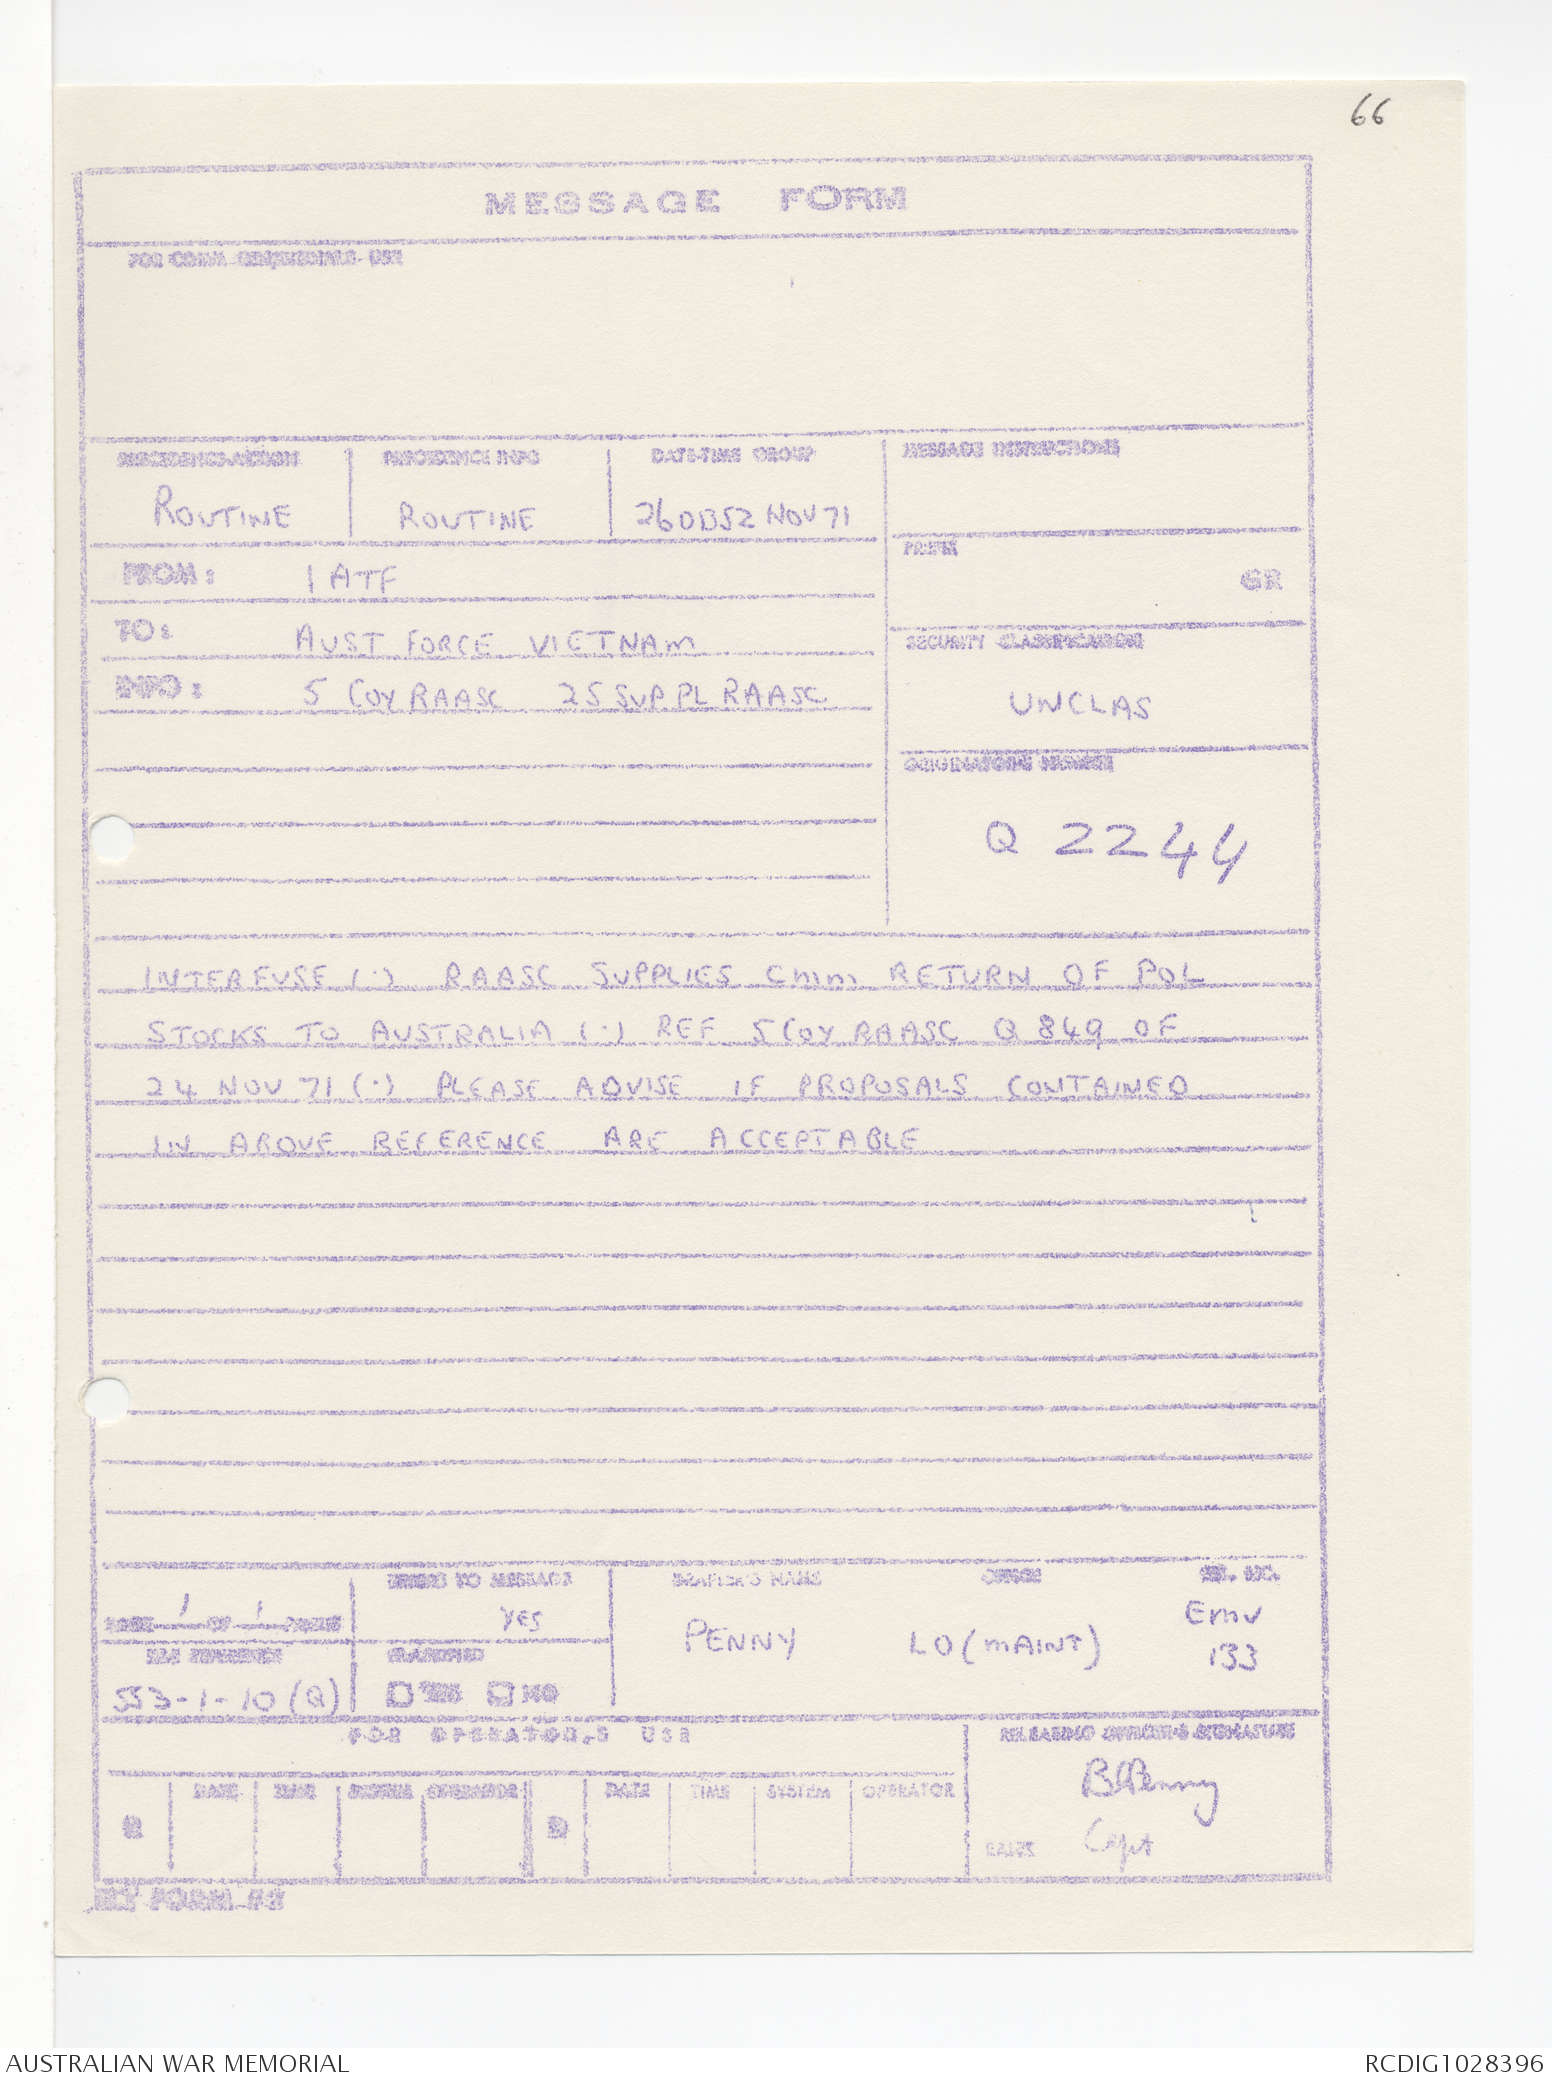 66
MESSAGE FORM
FOR COMM CEN/SIGNALS USE
PRECEDENCE-ACTION PRECEDENCE INFO DATE-TIME GROUP MESSAGE INSTRUCTIONS
ROUTINE ROUTINE NOV 71
PREFIX
GR
FROM: 1 ATF
TO: AUST FORCE VIETNAM
SECURITY CLASSIFICATION
INFO: 5 COY RAASC 25 SUP PL RAASC
UNCLAS
ORIGINATORS NUMBER
Q 2244
INTERFUSE (.) RAASC SUPPLIES CMM RETURN OF POL
STOCKS TO AUSTRALIA (.) REF 5 COY RAASC Q 849 OF
24 NOV 71 (.) PLEASE ADVISE IF PROPOSALS CONTAINED
IN ABOVE REFERENCE ARE ACCEPTABLE
PAGE 1 OF 1 PAGES
REFERS TO MESSAGE
YES
DRAFTER'S NAME OFFICE TEL. NO.
PENNY LO (MAINT) EMU
133
FILE REFERENCE
553-1-10 (Q)
CLASSIFIED
YES NO
FOR OPERATOR'S USE
RELEASING OFFICER'S SIGNATURE
R DATE TIME SYSTEM OPERATOR D DATE TIME SYSTEM OPERATOR
Penny
RANK Capt
AUSTRALIAN WAR MEMORIAL
RCDIG1028396